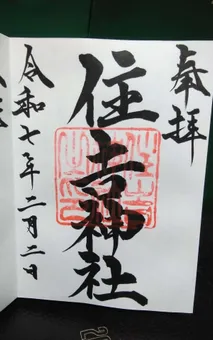 奉拝
住吉神社
令和七年二月二日